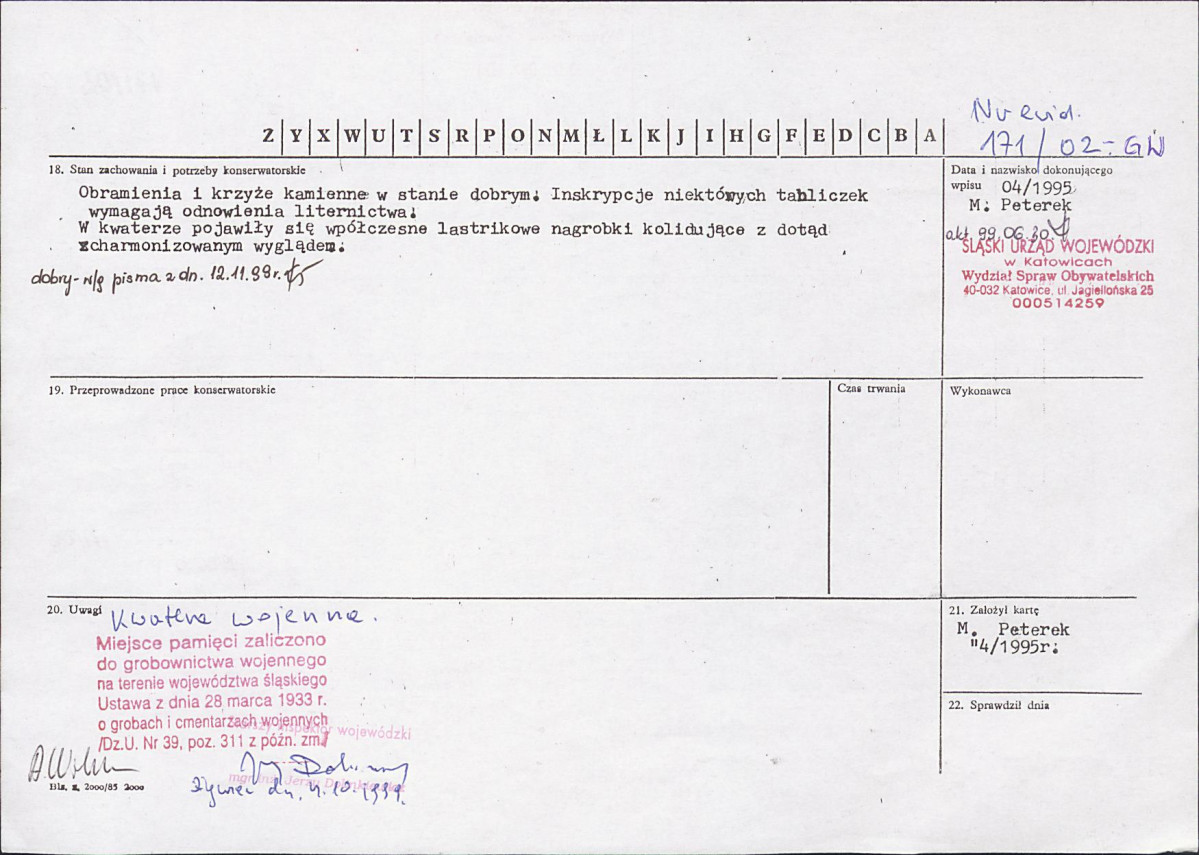 Nr ewid.
171/02-GW
Z Y X W U T S R P O N M Ł L K J I H G F E D C B A
18. Stan zachowania i potrzeby konserwatorskie
Obramienia i krzyże kamienne w stanie dobrym. Inskrypcje niektówych tabliczek
wymagają odnowienia liternictwa.
W kwaterze pojawiły się wpółczesne lastrikowe nagrobki kolidujące z dotąd
zcharmonizowanym wyglądem.
dobry - w/g pisma z dn. 12.11.98r.
Data i nazwisko dokonującego
wpisu 04/1995
M. Peterek
akt. 99.06.30
ŚLĄSKI URZĄD WOJEWÓDZKI
w Katowicach
Wydział Spraw Obywatelskich
40-032 Katowice, ul. Jagiellońska 25
000514259
19. Przeprowadzone prace konserwatorskie
Czas trwania
Wykonawca
20. Uwagi Kwatera wojenna.
Miejsce pamięci zaliczono
do grobownictwa wojennego
na terenie województwa śląskiego
Ustawa z dnia 28 marca 1933 r.
o grobach i cmentarzach wojennych
/Dz.U. Nr 39, poz. 311 z późn. zm/
inspektor wojewódzki
mgr inż. Jerzy
Żywiec dn. 4.10.1999.
Blz, z, 2000/85 2000
21. Założył kartę
M. Peterek
"4/1995r.
22. Sprawdził dnia